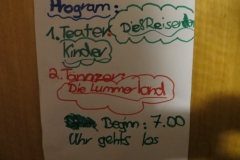 Program:
1. Teater Die Reisende
Kinder
2. Tannzen
Die Lummerland
Begin: 7.00
Uhr gehts los